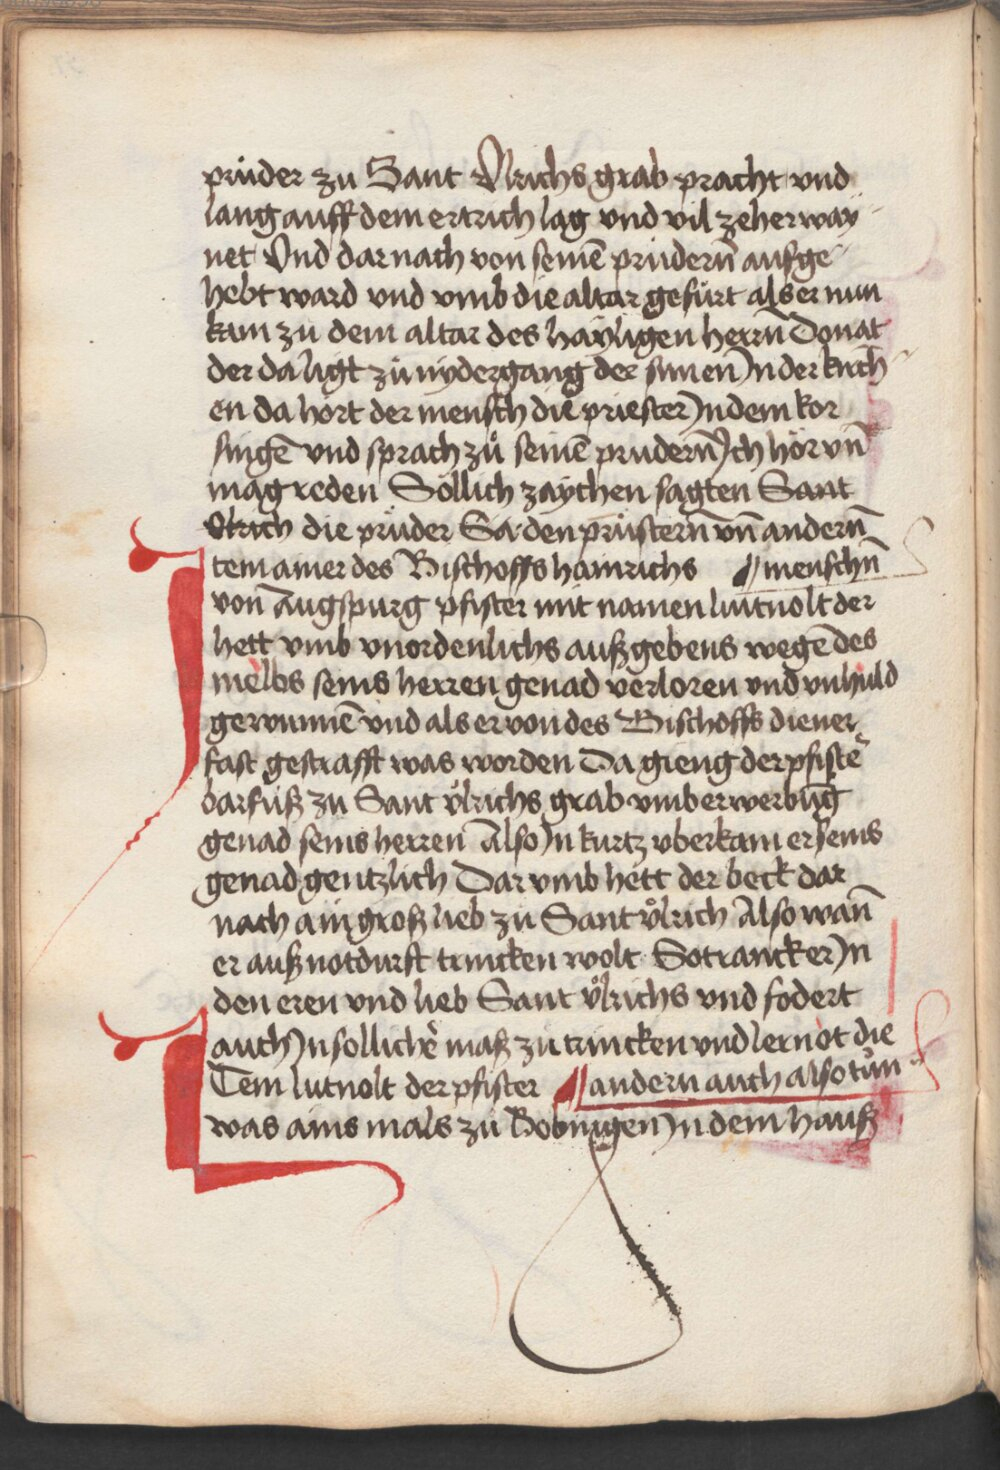 průder zu Sant Vlrichs grab pracht vnd
lang auff dem ertrich lag vnd vil zeher way-
net Vnd dar nach von seinē prudern̄ aufge-
hebt ward vnd vmb die altar gefürt als er nun
kam zu dem altar des hayligen herrn Donat
der da ligt zu nydergang der sunen Jn der kirch-
en da hort der mensch die priester Jn dem kor
singē vnd sprach zů seinē prudern̄ Jch hör vn̄
mag reden Söllich zaychen sagten Sant
Vlrich die prüder Sa den priistern̄ vn̄ andern̄
Jtem ainer des Bischoffs hainrichs ¶ menschn̄
von Augspurg pfister mit namen liutuolt der
hett vmb vnordenlichs außgebens wegē des
melbs seins herren genad verloren vnd vnhuld
gewunnē vnd als er von des Bischoffs diener
fast gestrafft was worden Da gieng der pfiste᷑
barfuß zu Sant vͦlrichs grab vmb erwerbūg
genad seins herren Also Jn kurtz vberkam er seins
genad gentzlich Dar vmb hett der beck dar
nach ain groß lieb zu Sant vͦlrich Also wan̄
er auß notdurft trincken wolt So tranck er Jn
den eren vnd lieb Sant vͦlrichs vnd fodert
auch Jn solliche᷑ maß zu trincken vnd lernot die
JTem lutuolt der pfister ¶ andern auch also tůn
was ains mals zu Bobingen Jn dem hauß